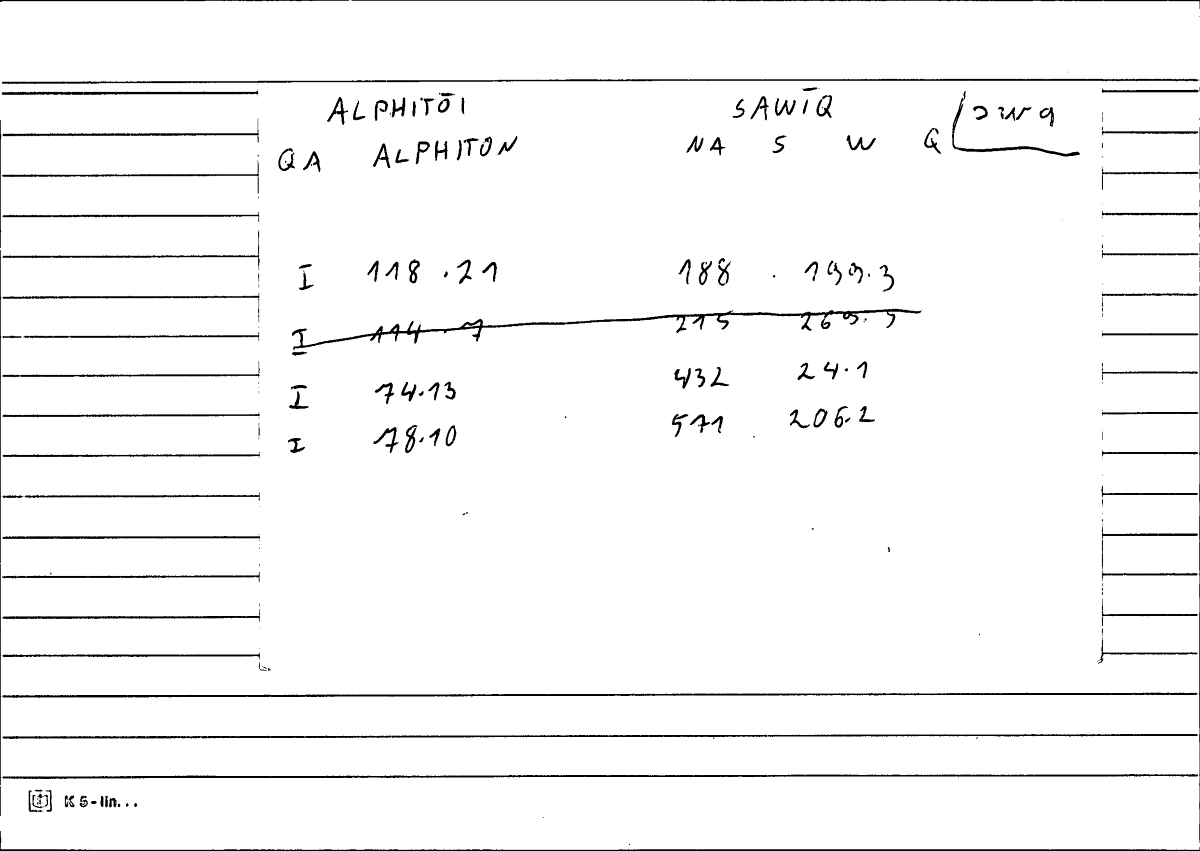 ALPHITŌI SAWĪQ swq
QA ALPHITON NA S W Q
I 118.21 188 . 199.3
I 114.7 215 269.5
I 74.13 432 24.1
I 78.10 571 206.2
K 5-lin...